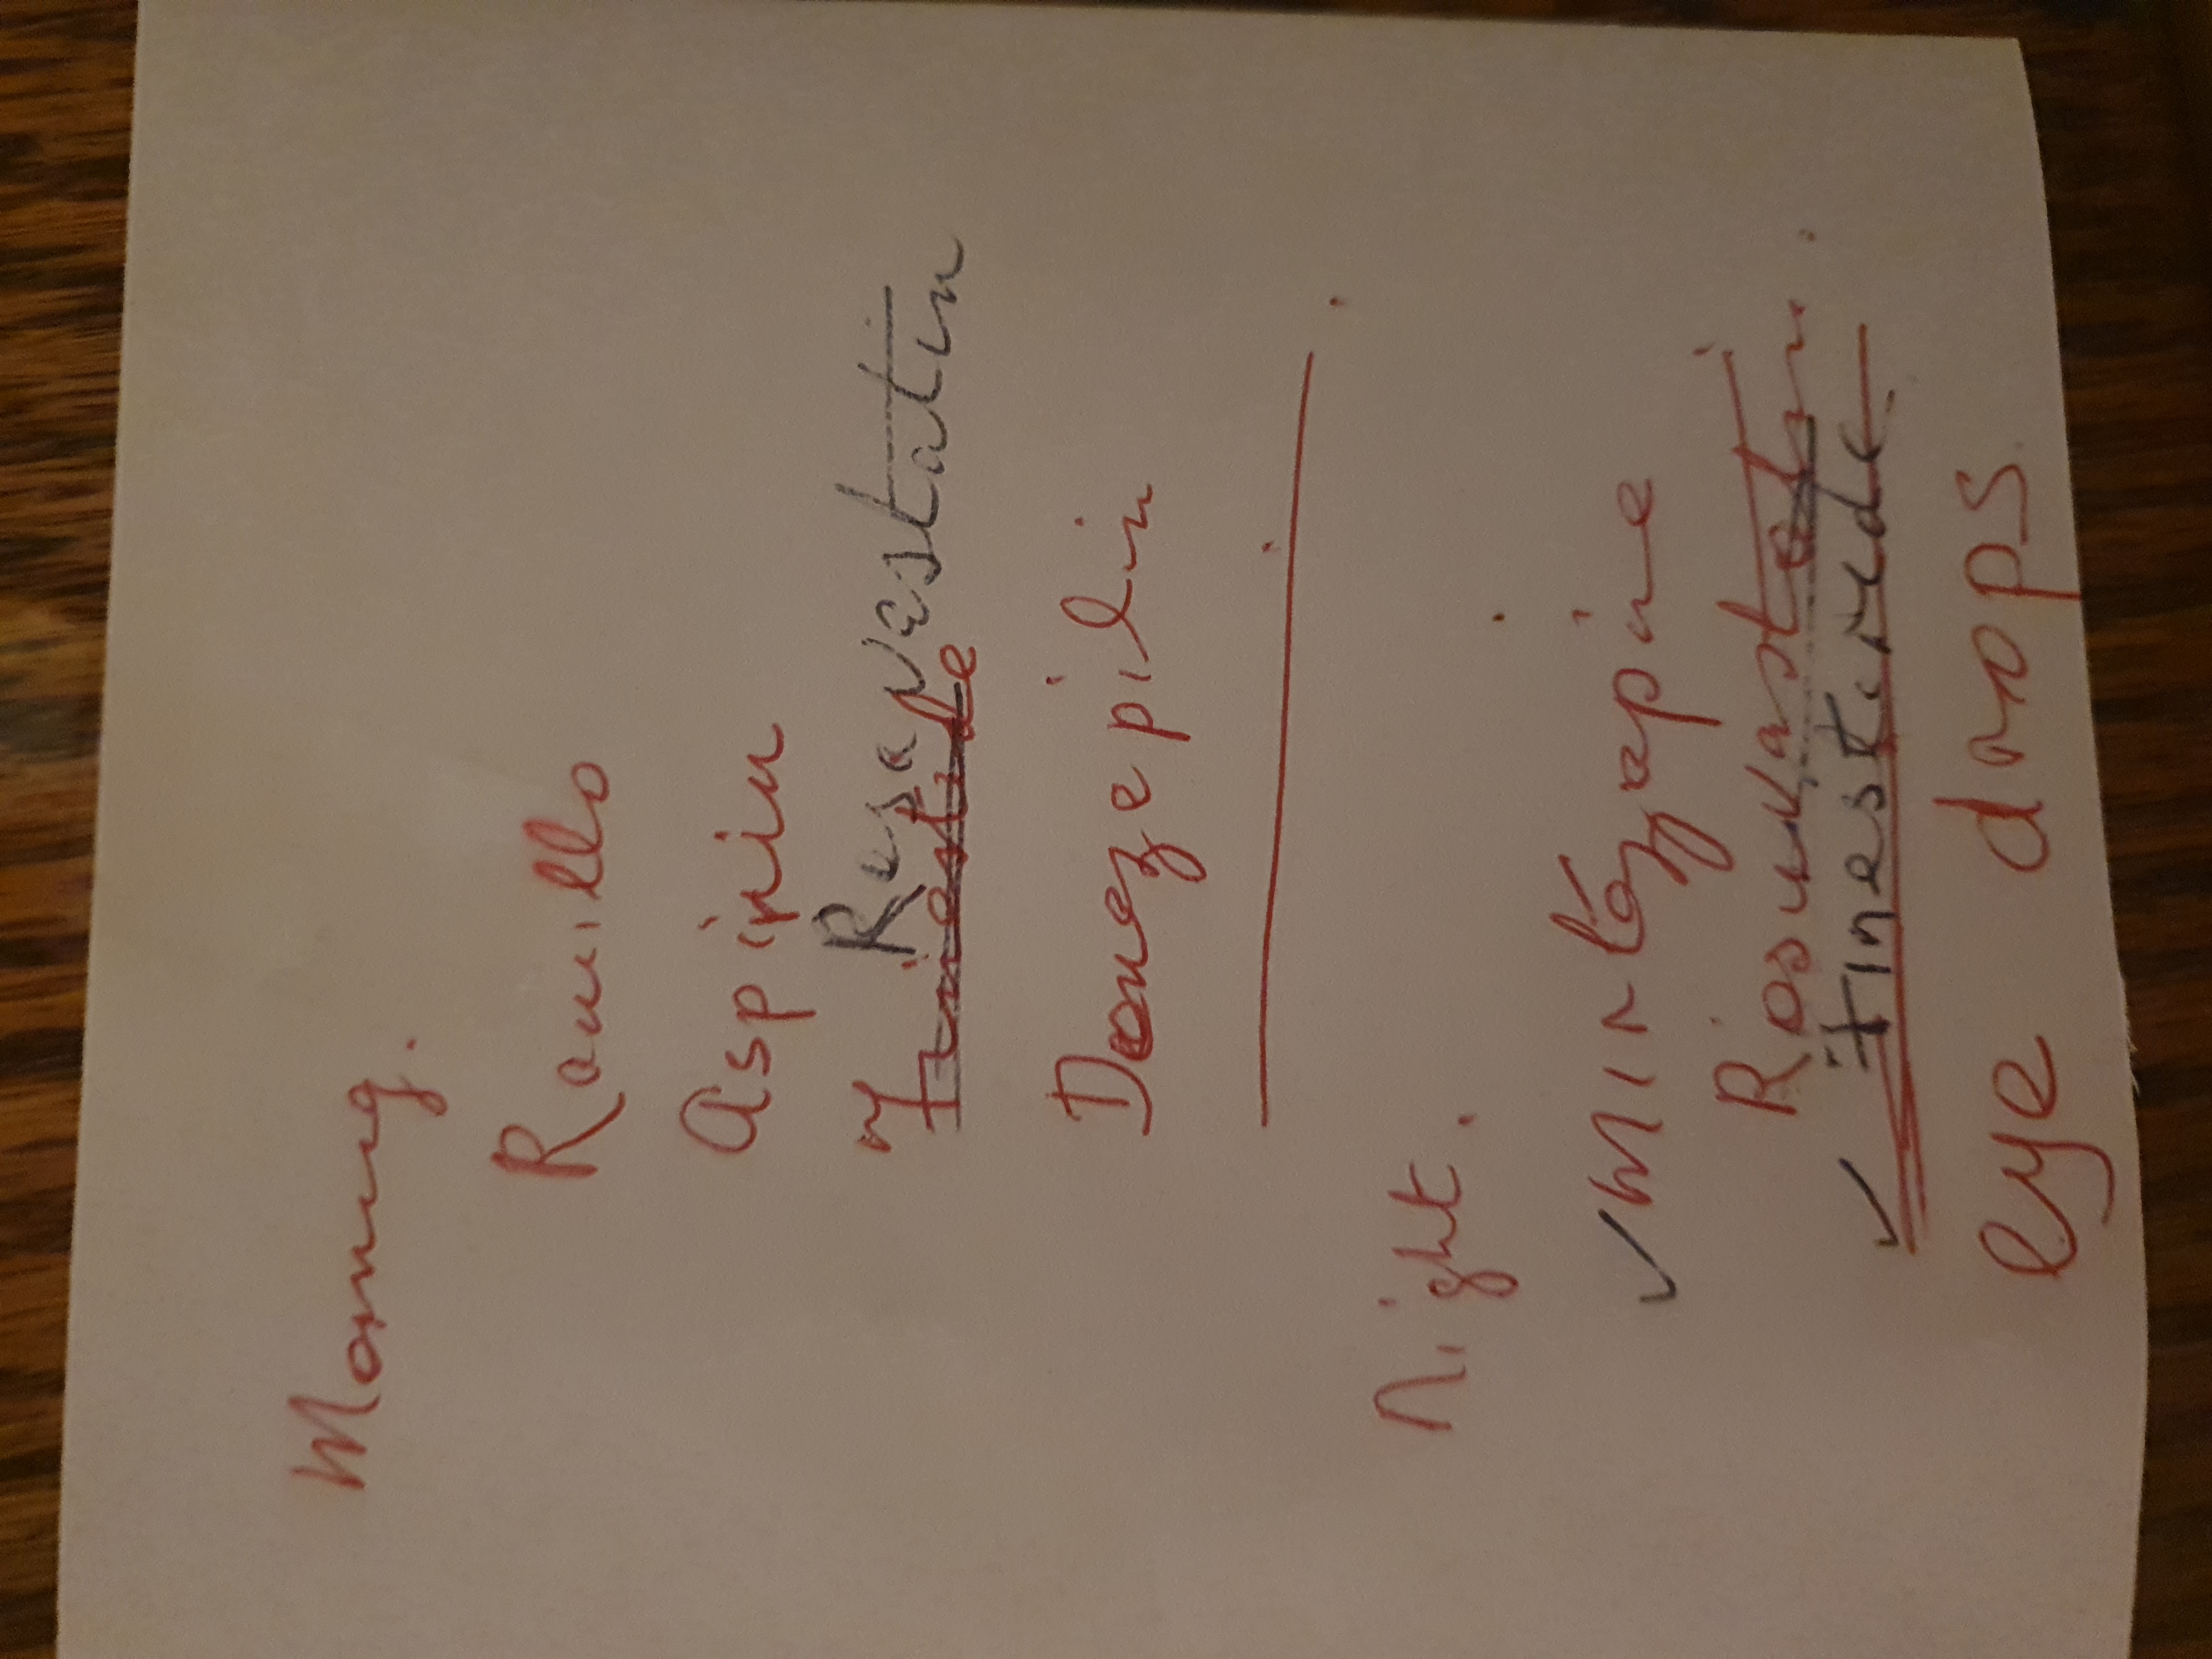 Morning.
Ramillo
Aspirin
Resavestatin
Finestide
Donezepilin
Night.
✓ Mirtazapine
Rosuvastatin.
✓ Finesteride
eye drops